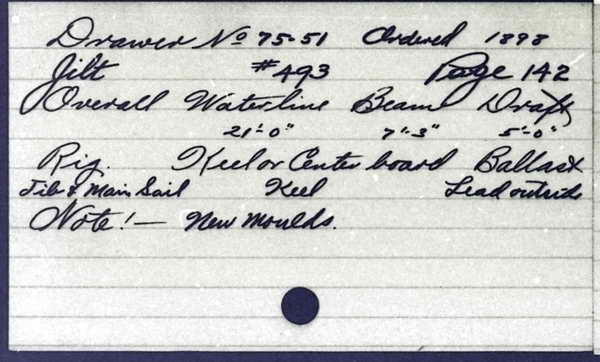 Drawer No 75-51 Ordered 1898
Jilt #493 Page 142
Overall Waterline Beam Draft
21'-0" 7'-3" 5'-0"
Rig. Keel or Center board Ballast
Jib & Main Sail Keel Lead outside
Note!— New Moulds.